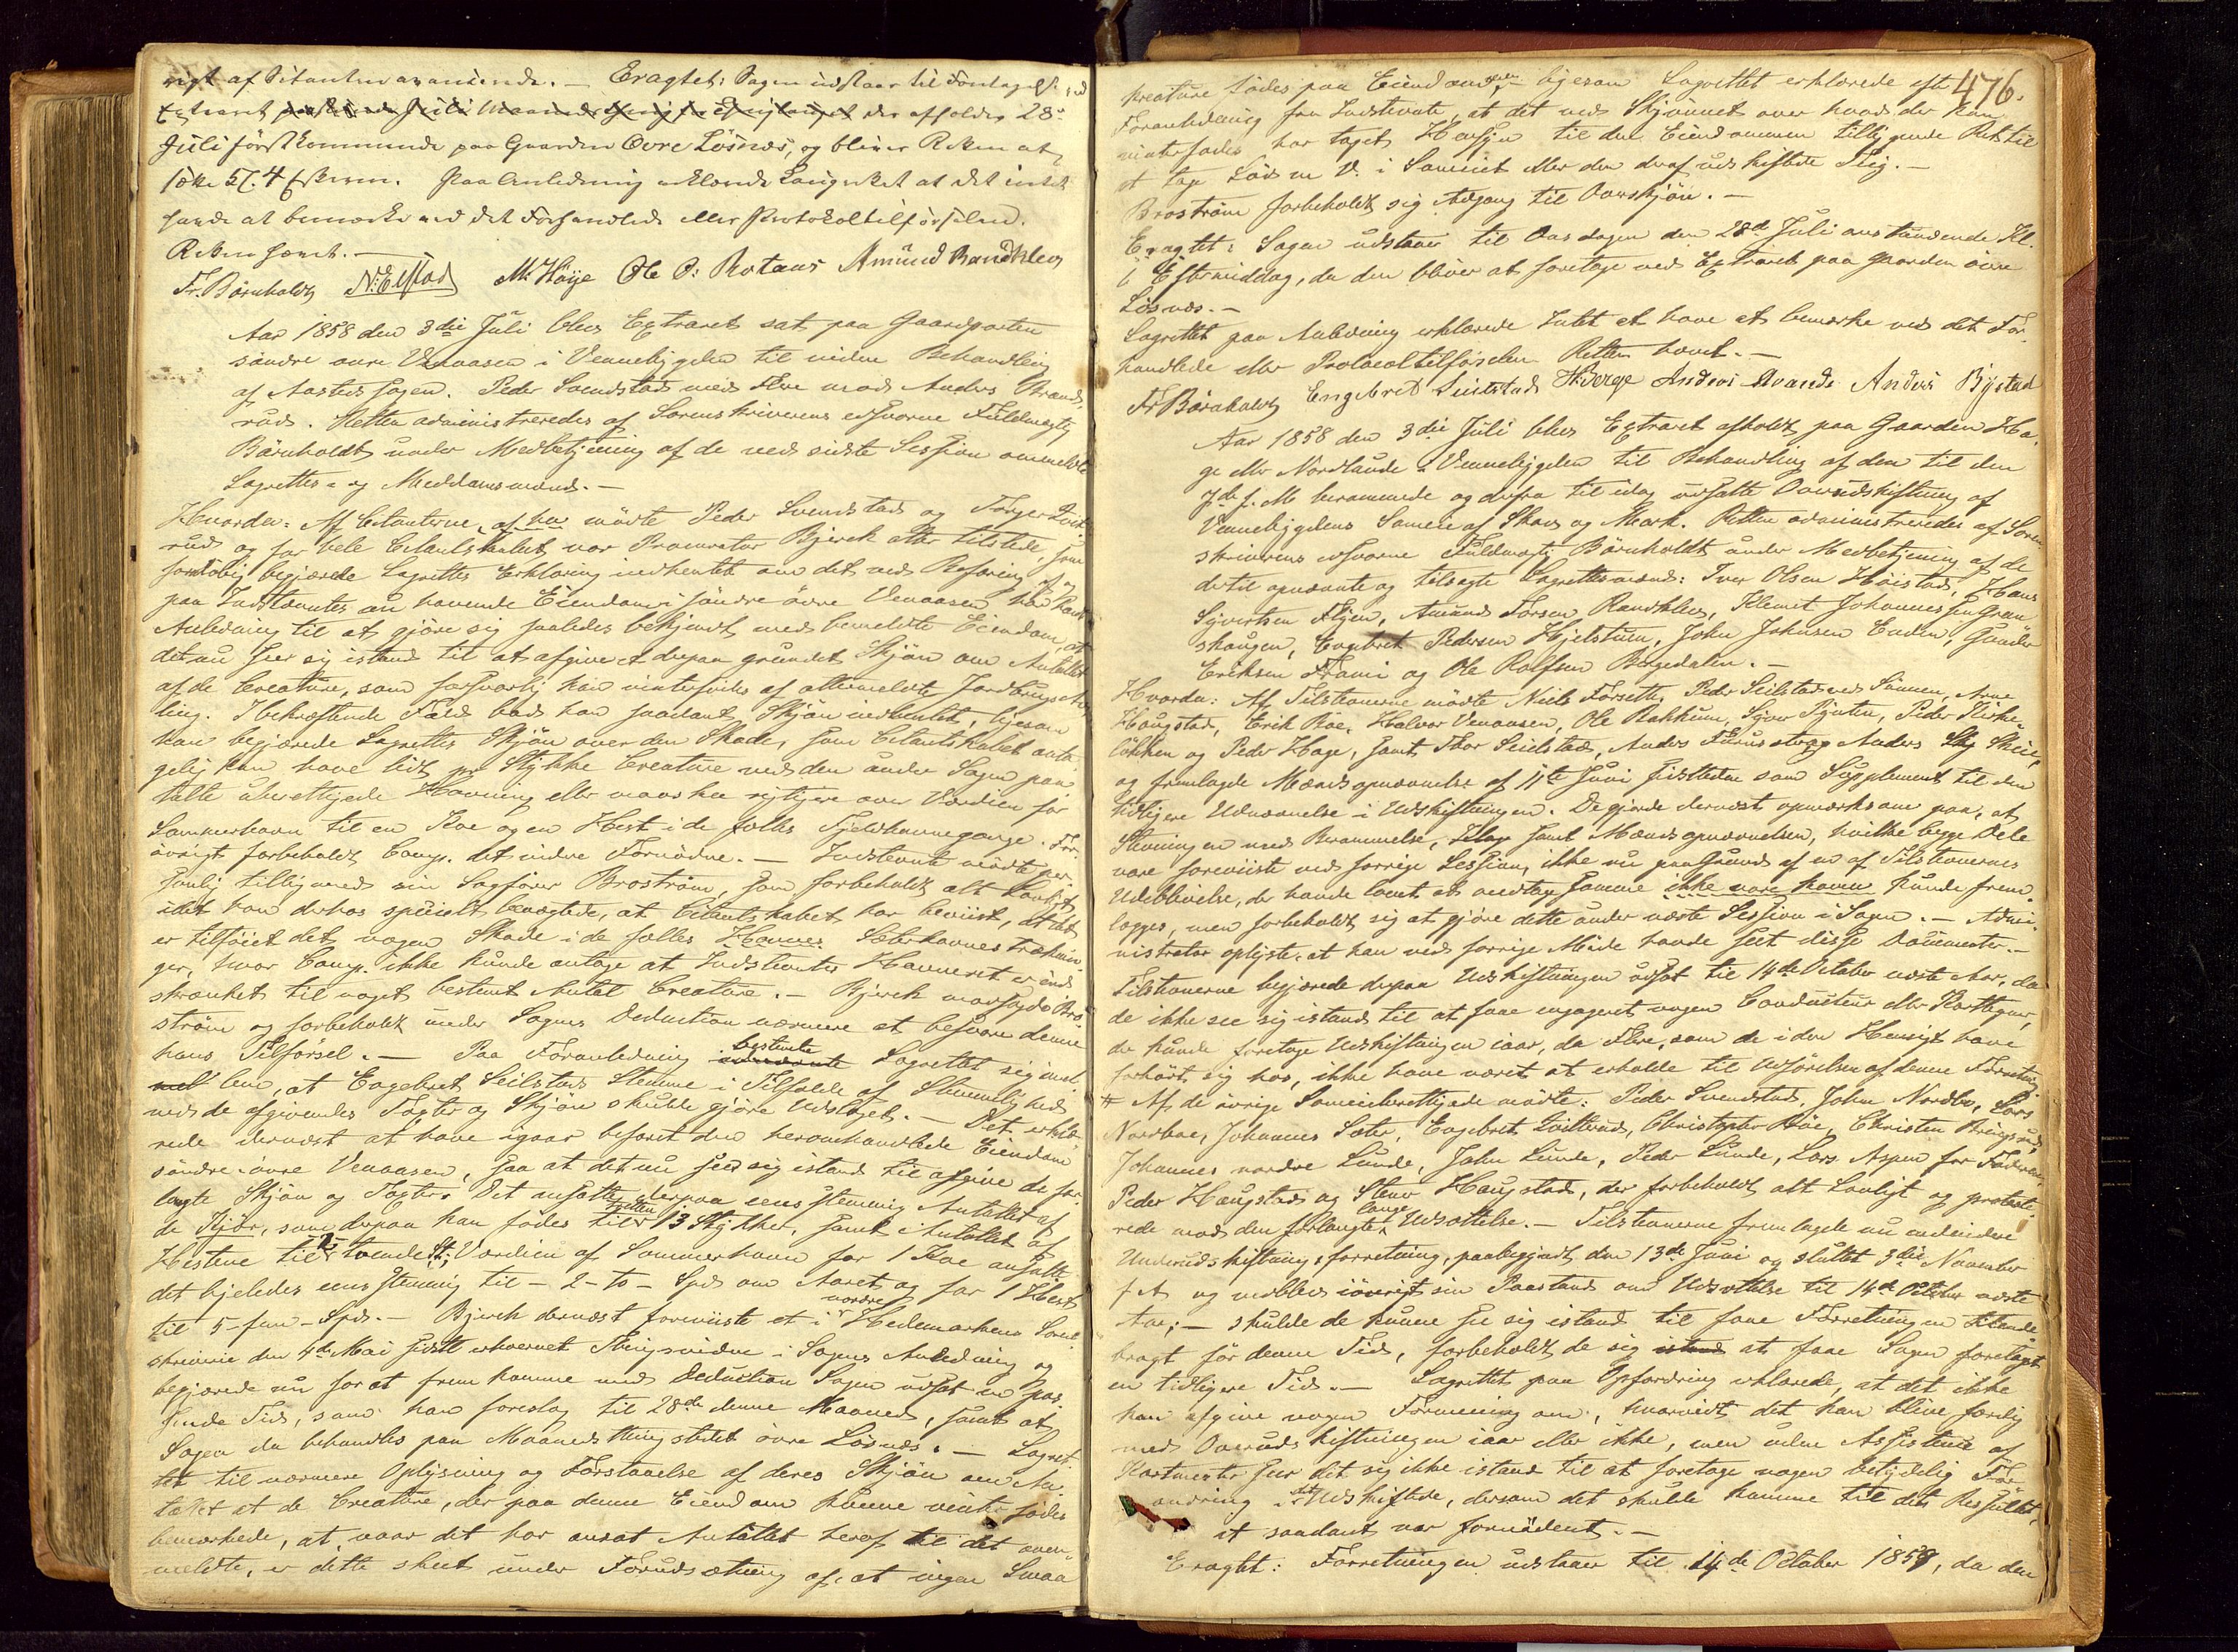 rigt af Citanterne anmeende. — Eragtet: Sagen udstaar til Foretagelse ved
Extraret der afholdes 28de
Juli förstkommende paa Gaarden Övre Lösnæs, og bliver Retten at
sætte Kl. 4 Efterm. Paa Anledning erklærede Laugrettet at det intet
havde at bemærke ved det Forhandlede eller Protokoltilförselen.
Retten hævet. —
Fr. Börnholdt N. Elstad M. Höye Ole P: Rotans Amund Randklev
Aar 1858 den 3die Juli blev Extraret sat paa Gaardparten
söndre övre Venaasen i Vennebygden til videre Behandling
af Aastedssagen. Peder Svendstad med Flere mod Anders Brænd-
rud. Retten administreredes af Sorenskriverens edsvorne Fuldmægtig
Börnholdt under Medbetjening af de ved sidste Session ommeldte
Lagrettes- og Meddomsmænd. —
Hvorda: Af Citanterne mödte Peder Svendstad og Torger
rud og for hele Citantskabet var Procurator Bjerck atter tilstede, som
forelöbig begjærede Lagrettets Erklæring indhentet om det ved Befaring af og
paa Indstævntes nu havende Eiendom i söndre övre Venaasen har havt
Anledning til at gjöre sig saaledes bekjendt med bemeldte Eiendom, at
det nu seer sig istand til at afgive et derpaa grundet Skjön om Antallet
af de Creature, som forsvarlig kan vinterfødes af ottemeldte Jordbrugs
ling. I bekræftende Fald bad han saadant Skjön indhentet, ligesom
han begjærede Lagrettets Skjön over den Skade, som Citantskabet anta-
gelig kan have lidt pr Stykke Creature ved den under Sagen paa-
talte uberettigede Havning eller maaskee rigtigere over Værdien for
Sommerhavn til en Koe og en Hest i de fælles Fjeldhavnegange. For-
övrigt forbeholdt Comp. det videre Fornödne. — Indstevnte mödte per-
sonlig tilligemed sin Sagförer Broström, som forbeholdt alt Lovligt,
idet han derhos specielt benægtede, at Citantskabet har beviist, at det
er tilföiet det nogen Skade i de fælles Havne Sæterhavnestræknin-
ger, hvor Comp. ikke kunde antage at Indstevntes Havneret er ind-
skrænket til noget bestemt Antal Creature. — Bjerck modsagde Bro-
ström og forbeholdt under Sagens Deduction nærmere at besvare denne
hans Tilförsel. — Paa Foranledning bestemte Lagrettet sig imel-
lem, at Engebret Seilstads Stemme i Tilfælde af Stemmelighed
ved de afgivendes Taxter og Skjön skulde gjöre Udslaget. — Det erklæ-
rede dernæst at have igaar befaret den heromhandlede Eiendom
söndre övre Venaasen, saa at det nu seer sig istand til at afgive de for-
langte Skjön og Taxter. Det ansatte derpaa eensstemmig Antallet af
de Kjör, som derpaa kan födes til 13 tretten Stykker, samt i Antallet af
Hestene til 2 tvende St: Værdien af Sommerhavn for 1 Koe ansatte
det ligeledes eensstemmig til – 2 – to – Spd. om Aaret og for 1 Hest
til 5 – fem – Spd. — Bjerck dernæst foreviiste et i nordre Hedemarkens Soren-
skriverie den 4de Mai sidstl erhvervet Thingsvidne i Sagens Anledning og
begjærede nu for at fremkomme med Deduction Sagen udsat en pas-
sende Tid, som han foreslog til 28de denne Maaned, samt at
Sagen da behandles paa Maanedsthingstedet övre Lösnæs. — Lagret-
tet til nærmere Oplysning og Forstaaelse af deres Skjön om An-
tallet af de Creature, der paa denne Eiendom kunne vinterfødes
bemærkede, at naar det har ansat Antallet heraf til det oven-
meldte, er dette skeet under Forudsætning af, at ingen Smaa-
476.
kreature födes paa Eiendommen, ligesom Lagrettet erklærede efter
Foranledning fra Indstevnte, at det ved Skjönnet over hvad der kan
vinterfødes har taget Hensyn til den Eiendommen tilliggende Ret til
at tage Löv m. V. i Sameiet eller den deraf udskiftede Teig. —
Broström forbeholdt sig Adgang til Overskjön. —
Eragtet: Sagen udstaaer til Onsdagen den 28de Juli anstundende Kl.
6 Eftermiddag, da den bliver at foretage ved Extraret paa Gaarden övre
Lösnæs. —
Lagrettet paa Anledning erklærede Intet at have at bemærke ved det For-
handlede eller Protocoltilförselen. Retten hævet. —
Fr Börnholdt Engebret Seilstad H. Berge Andreas Svande Anders Bystad
Aar 1858 den 3die Juli blev Extraret afholdt paa Gaarden Ha-
ge eller Nordlunde i Vennebygden til Behandling af den til den
7de f. M. berammede og derfra til idag udsatte Overudskiftning af
Vennebygdens Sameie af Skov og Mark. Retten administreredes af Soren-
skriverens edsvorne Fuldmægtig Börnholdt under Medbetjening af de
dertil opnævnte og tilsagte Lagrettesmænd: Iver Olsen Höistad, Hans
Syvertsen Flyen, Amund Torsen Randklev, Klemet Johannessen Gran-
skougen, Engebret Pedersen Hjelstuen, John Johnsen Enden, Gunder
Eriksen Stami og Ole Rolfsen Bergedalen. —
Hvorda: Af Tilstævnerne mödte Niels Forsetlie, Peder Seilstad ved Sönnen, Arne
Haugstad, Erik Roe, Halvor Venaasen, Ole Bakkum, Syver Pynten, Peder Kirke-
lökken og Peder Hage, samt Thor Seielstad, Anders Furustop og Anders Skei,
og fremlagde Mændsopnævnelse af 11te Juni sidstleden som Supplement til den
tidligere Udnævnelse i Udskiftningen. De gjorde dernæst opmærksom paa, at
Stevningen med Berammelse, samt Mændsopnævnelsen, hvilke begge Dele
vare foreviiste ved forrige Session, ikke nu paa Grund af en af Tilstevnernes
Udeblivelse, der havde lovet at medtage samme ikke vare kunde frem-
lægges, men forbeholdt sig at gjöre dette under næste Session i Sagen. — Admi-
nistrator oplyste, at han ved forrige Möde havde seet disse Documenter. —
Tilstevnerne begjærede derpaa Udskiftningen udsat til 14de October næste Aar, da
de ikke see sig istand til at faae engageret nogen Conducteur eller Karttegner,
der kunde foretage Udskiftningen iaar, da Flere, som de i den Hensigt have
forhört sig hos, ikke have været at erholde til Udförelsen af denne Forretning
Af de övrige Sameieberettigede mödte: Peder Svendstad, John Nordbö, Lars
Nordboe, Johannes Sæter, Engebret, Christopher Böe, Christen Bringsrud,
Johannes nordre Lunde, John Lunde, Peder Lunde, Lars Aspen for Faderen,
Peder Haugstad og Stener Haugstad, der forbeholdt alt Lovligt og proteste-
rede mod den forlangte lange Udsættelse. — Tilstevnerne fremlagde nu endvidere
Underudskiftningsforretning, paabegyndt den 13de Juni og sluttet 3die November
f A og nedlagde iövrigt sin Paastand om Udsættelse til 14de October næste
Aar; — skulde de kunne see sig istand til faae Forretningen tilende-
bragt för denne Tid, forbeholdt de sig at faae Sagen foretaget
en tidligere Tid. — Lagrettet paa Opfordring erklærede, at det ikke
kan afgive nogen Formening om, hvorvidt det kan blive færdig
med Overudskiftningen iaar eller ikke, men uden Assistence af
Kartmester seer det sig ikke istand til at foretage nogen betydelig For-
andring i det Udskiftede, dersom det skulde komme til det Resultat,
at saadant var fornödent. —
Eragtet: Forretningen udstaaer til 14de October 1859, da den